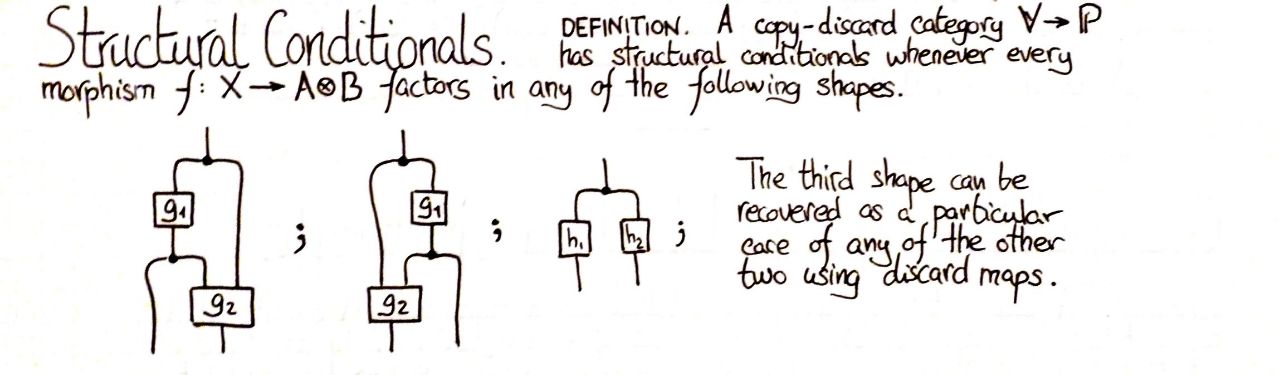 Structural Conditionals. DEFINITION. A copy-discard category V→ℙ
has structural conditionals whenever every
morphism f: X → A⊗B factors in any of the following shapes.
g₁ ; g₁ ; h₁ h₂ ;
g₂ g₂
The third shape can be
recovered as a particular
case of any of the other
two using discard maps.